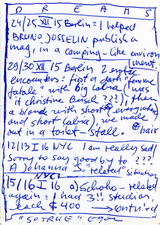 DREAMS
24/25 XII 15 Berlin = I helped
BRUNO JOSSELIN publish a
mag, in a camping-like environ
ment.
29/30 XII 15 Berlin 2 
encounters: first a dark "femme
fatale" with big labia (was
it christine ???), then
a blonde with short everything
and short labia, we made
out in a toilet-stall. hair
12/13 I 16 NYC I am really sad
sorry to say good by to ???
A Johanna S. related situation
NYC
15/16 I 16 a Scho related
again: I had 3 studios,
each $400 continued
"SOTRUE"